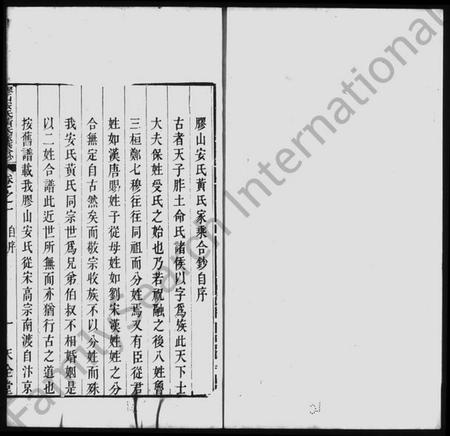 膠山安氏黃氏家乘合鈔自序
古者天子胙土命氏諸侯以字爲族此天下士
大夫保姓受氏之始也乃若祝融之後八姓魯
三桓鄭七穆往往同祖而分姓焉又有臣從君
姓如漢唐賜姓子從母姓如劉宋漢姓姓之分
合無定自古然矣而敬宗收族不以分姓而殊
我安氏黃氏同宗世爲兄弟伯叔不相婚姻是
以二姓合譜此近世所無而亦猶行古之道也
按舊譜載我膠山安氏從宋高宗南渡自汴京
卷之一
自序
一
天全堂
FamilySearch International